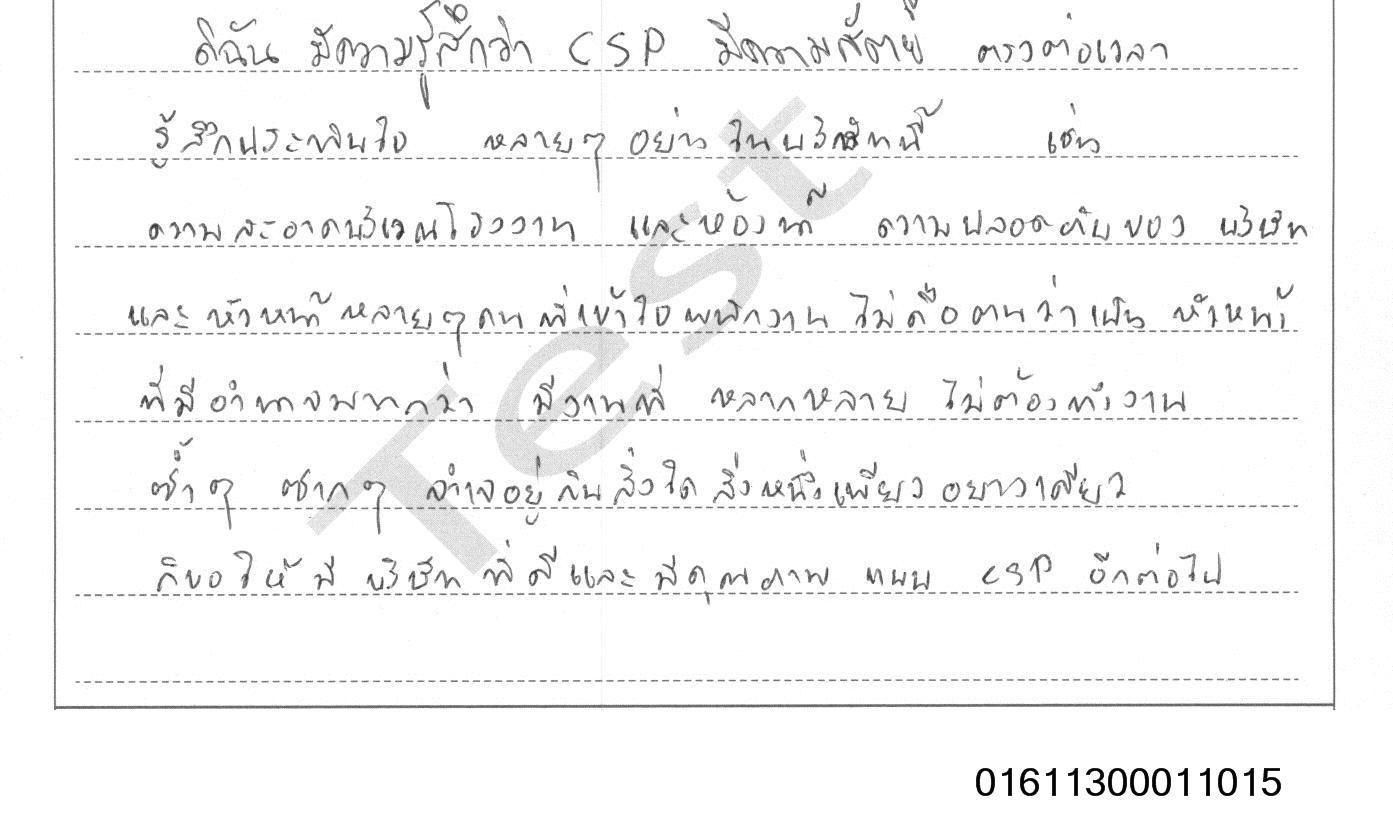 ดิฉัน มีความรู้สึกว่า CSP มีความ ตรงต่อเวลา
รู้สึกประทับใจ หลายๆ อย่าง ในบริษัทนี้ เช่น
ความสะอาดบริเวณโรงงาน และห้องน้ำ ความปลอดภัยของ บริษัท
และ หัวหน้าหลายๆคน ที่เข้าใจพนักงาน ไม่ถือตนว่าเป็น หัวหน้า
ที่มีอำนาจมากกว่า มีงานที่ หลากหลาย ไม่ต้องทำงาน
ซ้ำๆ ซากๆ จำเจอยู่กับสิ่งใด สิ่งหนึ่งเพียงอย่างเดียว
ก็ขอให้ มี บริษัท ที่ดีและ มีคุณภาพ แบบ CSP อีกต่อไป
Test
01611300011015